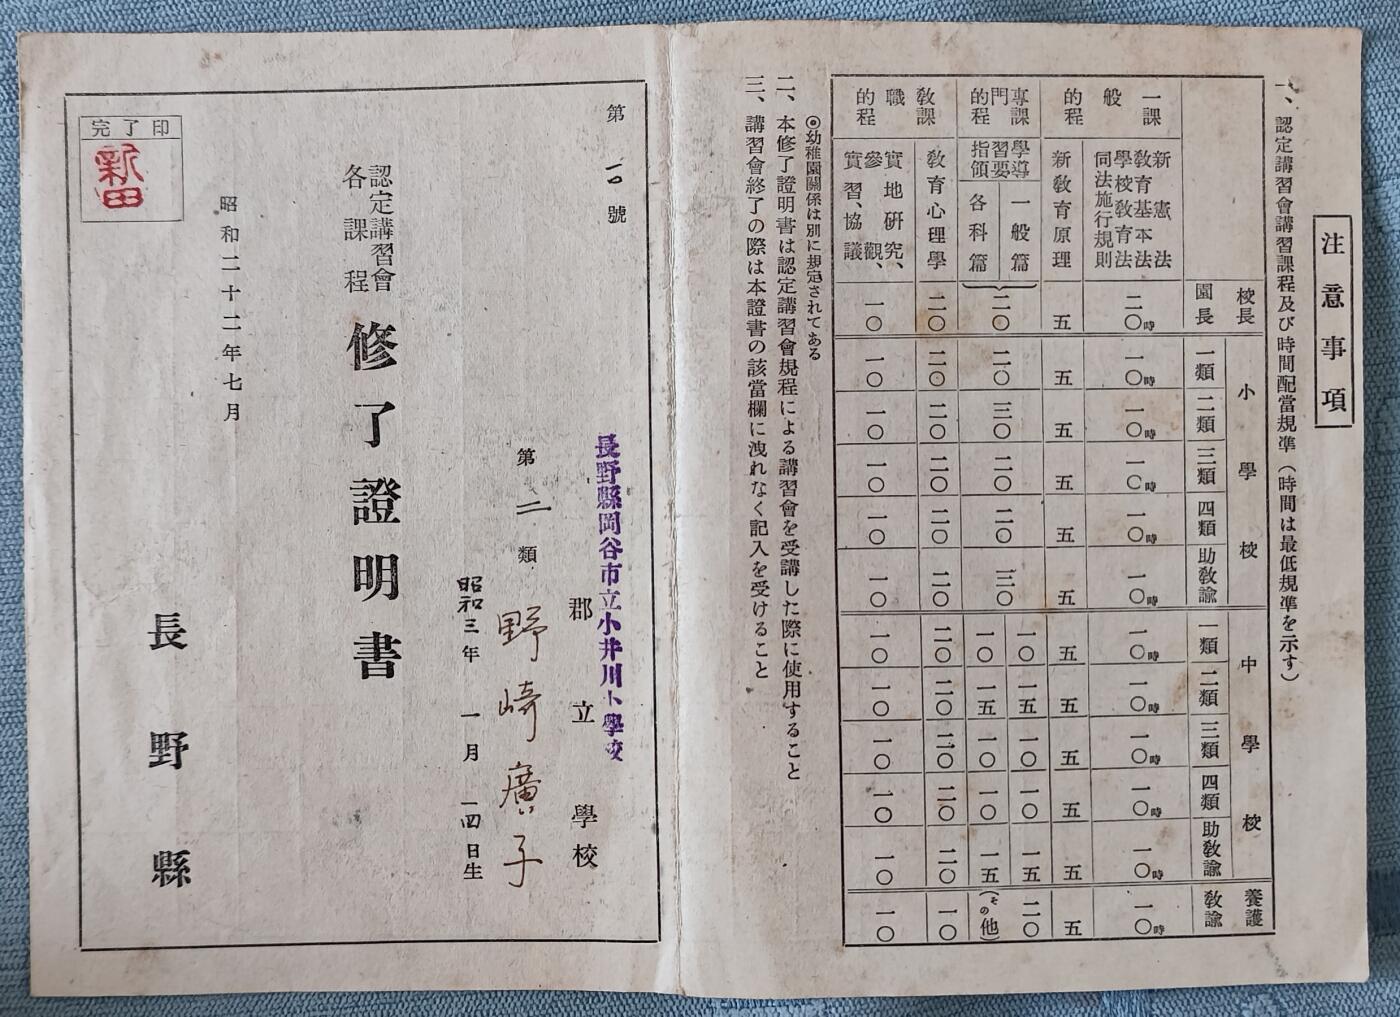 注意事項
一、認定講習會講習課程及び時間配當規準（時間は最低規準を示す）
校長
園長
小學校
一類
二類
三類
四類
助敎諭
中學校
一類
二類
三類
四類
助敎諭
養護
敎諭
一般
課程
的
新憲法
敎育基本法
學校敎育法
同法施行規則
二〇時
一〇時
一〇時
一〇時
一〇時
一〇時
一〇時
一〇時
一〇時
一〇時
一〇時
一〇時
新敎育原理
五
五
五
五
五
五
五
五
五
五
五
五
專門的
課程
學習指導要領
一般篇
各科篇
二〇
二〇
三〇
二〇
二〇
三〇
一〇
一五
一〇
一〇
一五
二〇
一〇
一五
一〇
一〇
一五
（その他）
敎職的
課程
敎育心理學
二〇
二〇
二〇
二〇
二〇
二〇
二〇
二〇
二〇
二〇
二〇
一〇
實地硏究、
參觀、
實習、協議
一〇
一〇
一〇
一〇
一〇
一〇
一〇
一〇
一〇
一〇
一〇
一〇
◎幼稚園關係は別に規定されてある
二、本修了證明書は認定講習會規程による講習會を受講した際に使用すること
三、講習會終了の際は本證書の該當欄に洩れなく記入を受けること
第一〇號
長野縣岡谷市立小井川小學校
郡立學校
第二類
野崎廣子
昭和三年一月一四日生
認定講習會
各課程
修了證明書
昭和二十二年七月
長野縣
完了印
新田